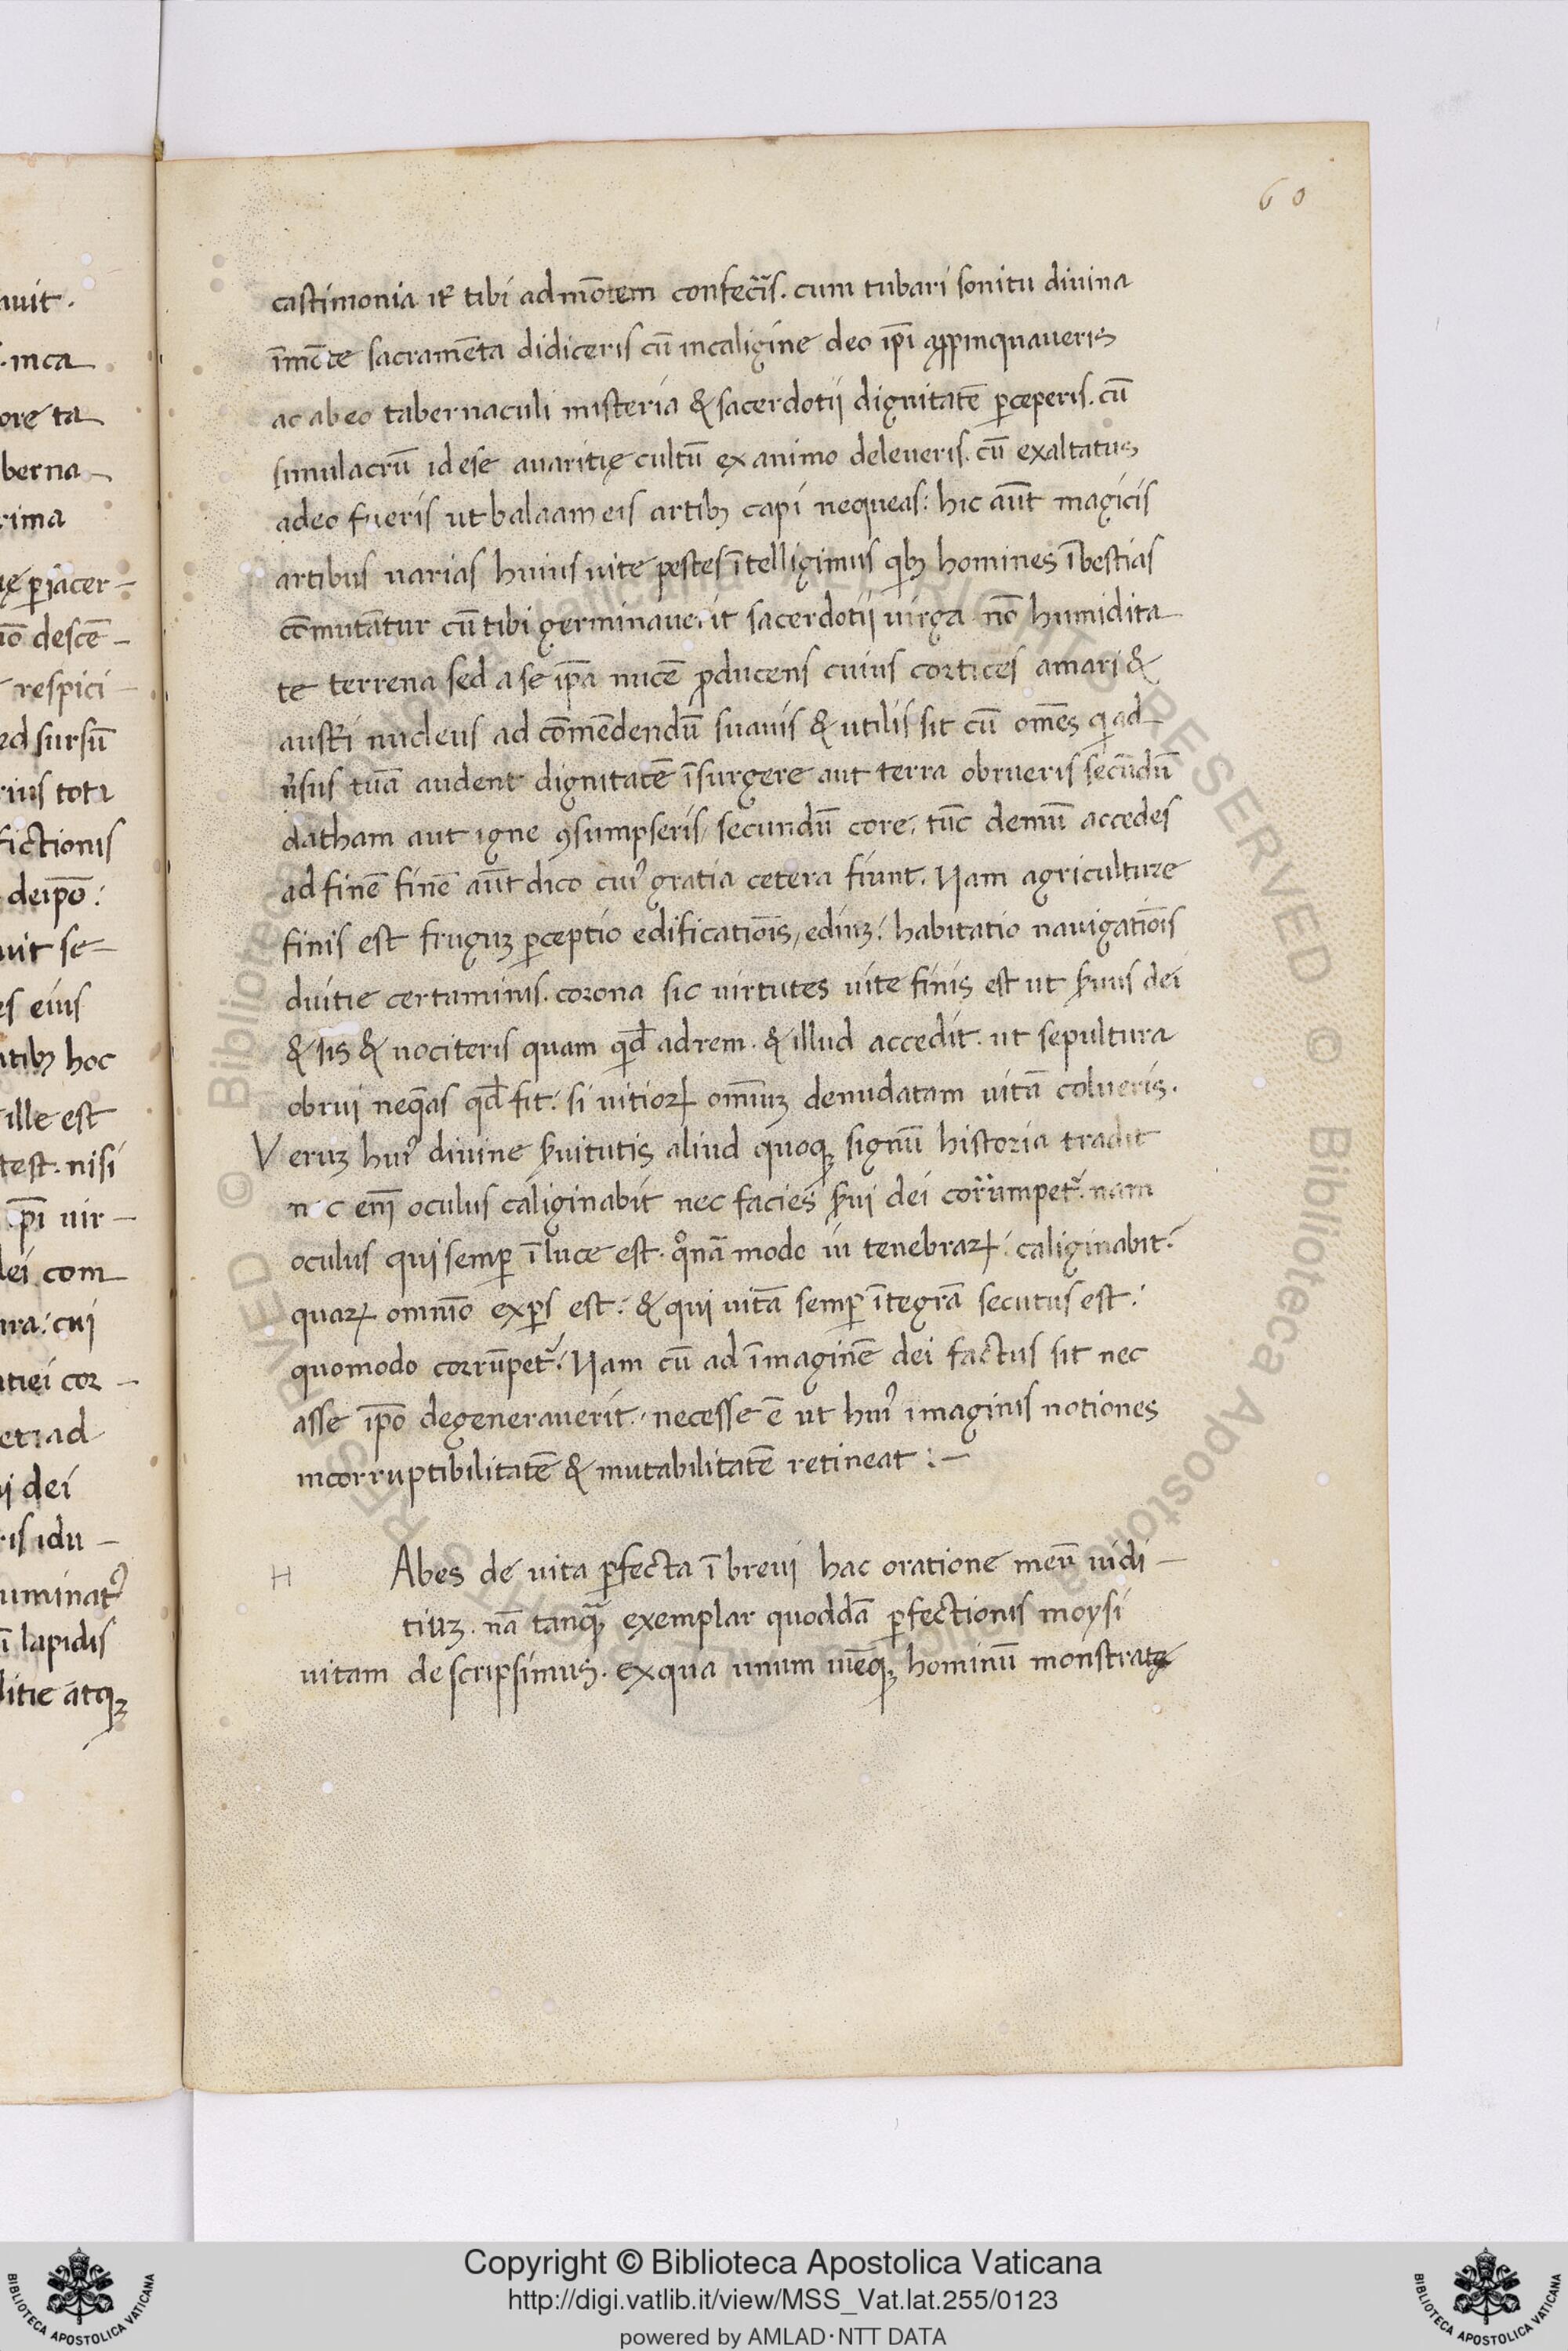 60
castimonia iť tibi ad mōtem confecr̃is. cum tubari sonitu diuina
ī mēte sacramēta didiceris cū in caligine deo ip̄i appinquaueris
ac ab eo tabernaculi misteria & sacerdotij dignitatē ꝑceperis. cū
simulacrū id ese auaritię cultū ex animo deleueris. cū exaltatus
adeo fueris ut balaam eis artibꝫ capi nequeas: hic aūt magicis
artibus uarias huius uite pestes ītelligimus qibꝫ homines ī bestias
cōmutātur cū tibi germinauerit sacerdotij uirga nō humidita
te terrena sed a se ip̄a nucē ꝓducens cuius cortices amari &
austeri nucleus ad cōmēdendū suauis & utilis sit cū om̄es qi ad
ūsus tuā audent dignitatē īsurgere aut terra obrueris secūdū
datham aut igne ꝯsumpseris, secundū core, tūc demū accedes
ad finē finē aūt dico cuiꝰ gratia cetera fiunt. Nam agriculture
finis est fruguꝫ ꝑceptio edificatiōis, ediuꝫ: habitatio nauigatiōis
diuitie certaminis. corona sic uirtutes uite finis est ut ẜuus dei
& sis & uociteris quam qid̄ ad rem. & illud accedit. ut sepultura
obrui neqeas qd̄ fit: si uitioꝝ om̄iuꝫ denudatam uitā colueris.
Veruꝫ huiꝰ diuine ẜuitutis aliud quoqꝫ signū historia tradit
nec enī oculus caliginabit nec facies ẜui dei corrumpet᷑. nam
oculus qui semper ī luce est. qonā modo iu tenebraꝝ: caliginabit?
quaꝝ omnīo expers est: & qui uitā semꝑ ītegrā secutus est:
quomodo corrūpet᷑? Nam cū ad īmaginē dei factus sit nec
asse ip̄o degenerauerit. necesse ē ut huiꝰ imaginis notiones
incorruptibilitatē & mutabilitatē retineat :—
H Abes de uita ꝑfecta ī breui hac oratione meū iudi-
tiuꝫ. nā tanquā exemplar quoddā ꝑfectionis moysi
uitam descripsimus. ex qua unum quēqꝫ hominū monstrate
auit.
. in ca
ore ta
berna-
rima
ę ꝑ iacer-
descē-
respici-
ed sursū
rius tota
fictionis
dei ip̄o:
uit se-
es eius
tibꝫ hoc
ille est
test. nisi
ip̄i uir-
lei com
ura: cui
tiei cor-
et ad
i dei
ris idu-
uminat᷑
lapidis
litie atqꝫ
Copyright © Biblioteca Apostolica Vaticana
http://digi.vatlib.it/view/MSS_Vat.lat.255/0123
powered by AMLAD·NTT DATA
BIBLIOTECA APOSTOLICA VATICANA
BIBLIOTECA APOSTOLICA VATICANA